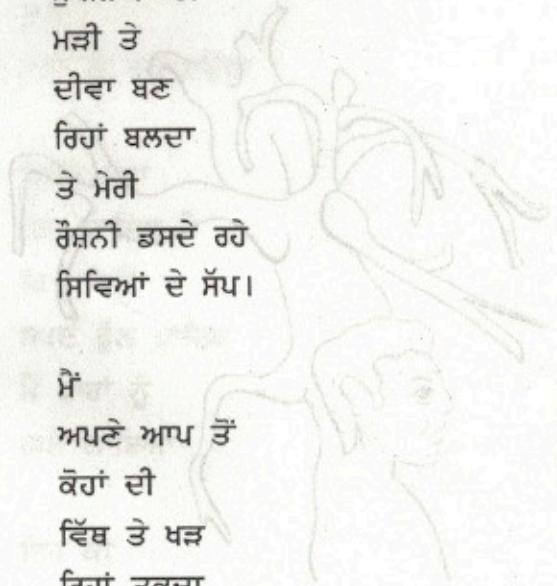 ਮੜੀ ਤੇ
ਦੀਵਾ ਬਣ
ਰਿਹਾਂ ਬਲਦਾ
ਤੇ ਮੇਰੀ
ਰੌਸ਼ਨੀ ਡਸਦੇ ਰਹੇ
ਸਿਵਿਆਂ ਦੇ ਸੱਪ।
ਮੈਂ
ਅਪਣੇ ਆਪ ਤੋਂ
ਕੋਹਾਂ ਦੀ
ਵਿੱਥ ਤੇ ਖੜ